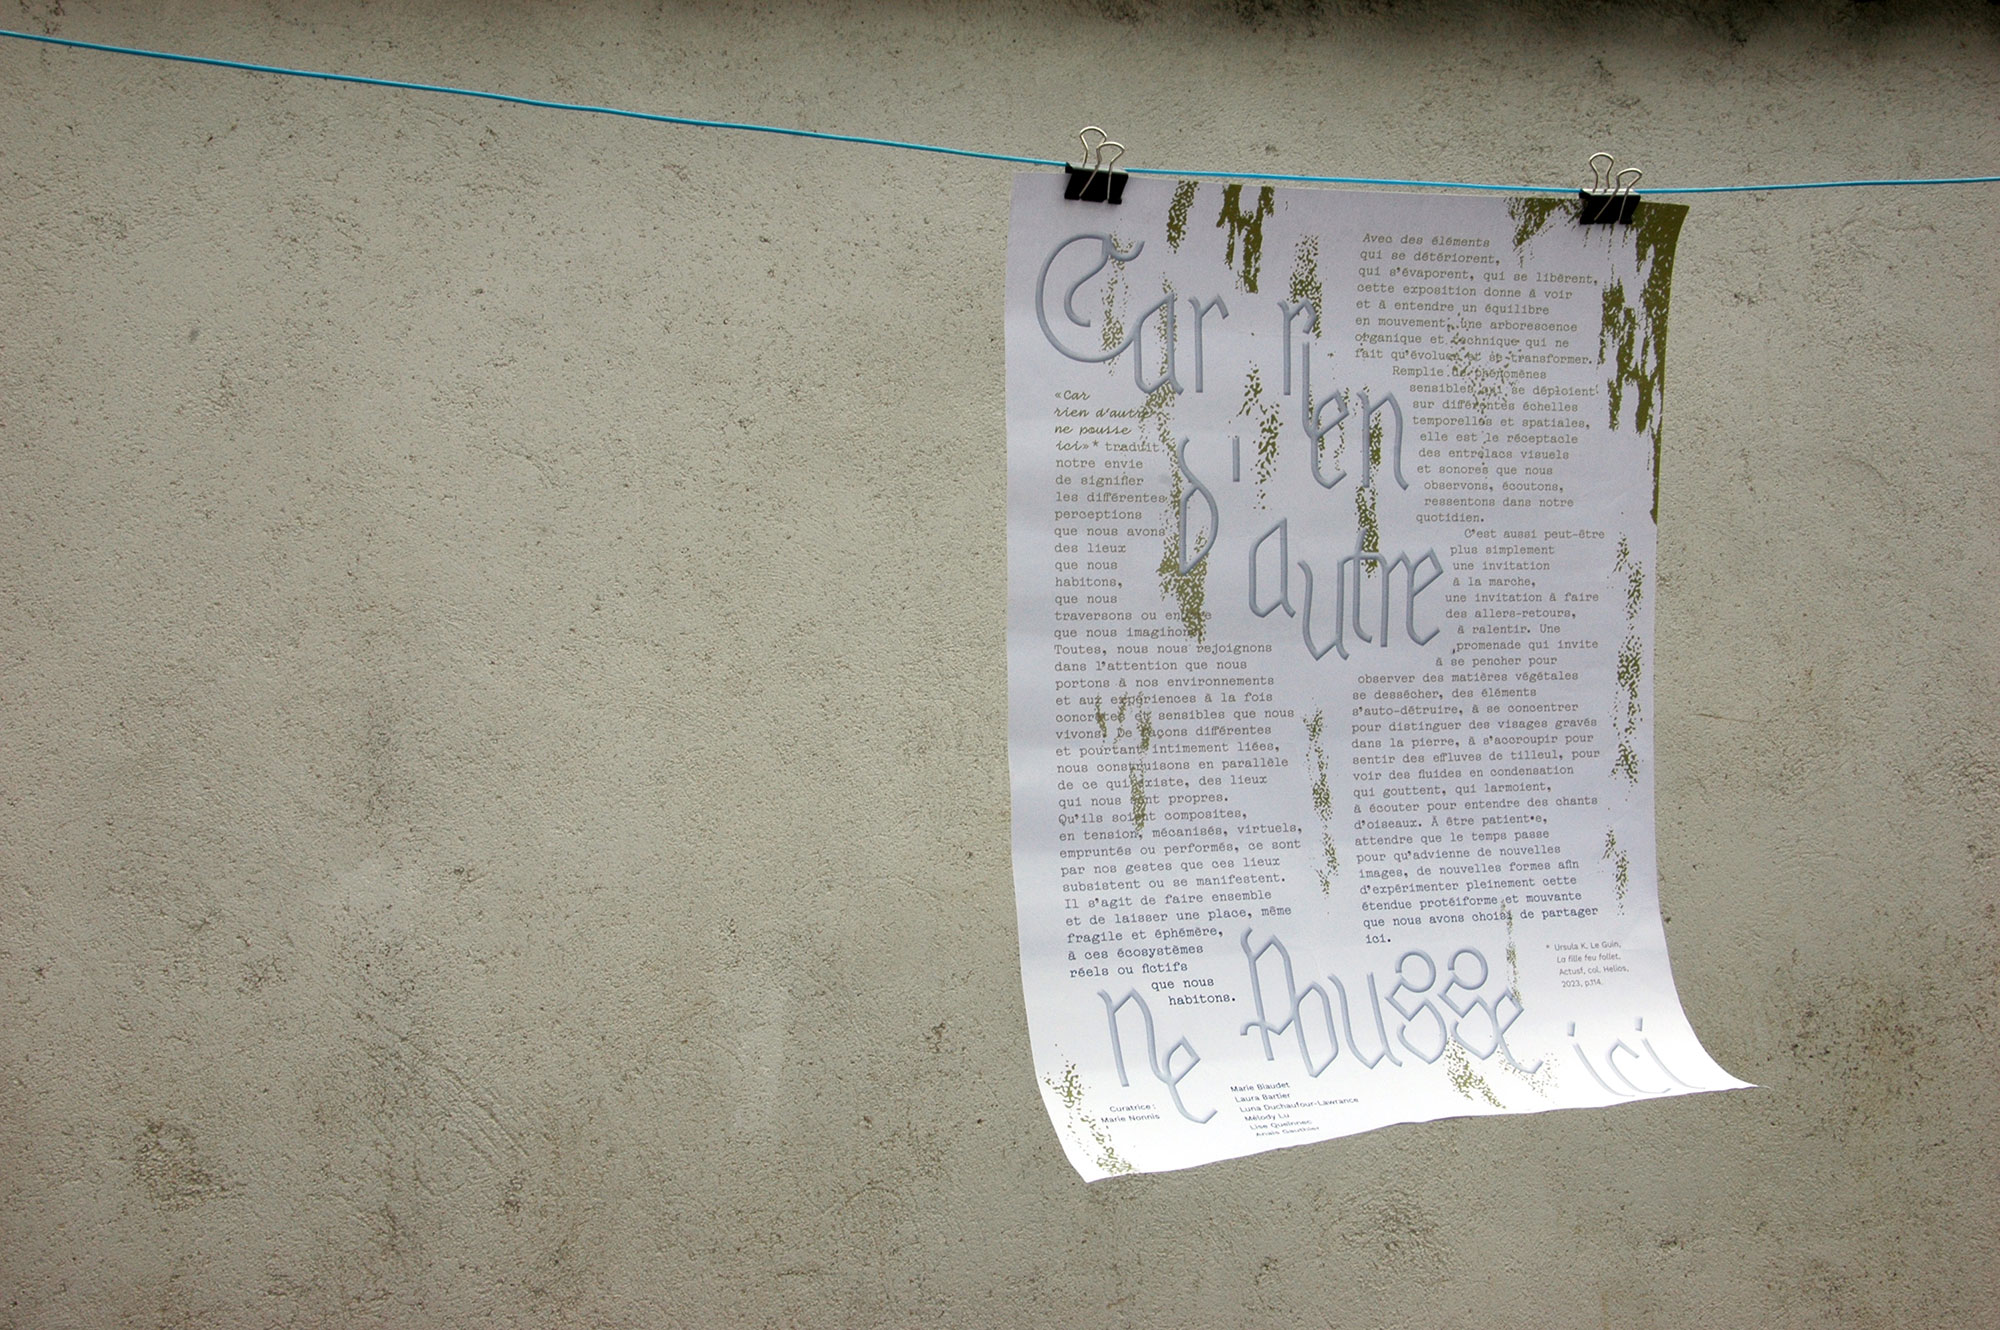 Car rien
d'autre
«Car
rien d'autre
ne pousse
ici»* traduit
notre envie
de signifier
les différentes
perceptions
que nous avons
des lieux
que nous
habitons,
que nous
traversons ou encore
que nous imaginons.
Toutes, nous nous rejoignons
dans l'attention que nous
portons à nos environnements
et aux expériences à la fois
concrètes et sensibles que nous
vivons. De façons différentes
et pourtant intimement liées,
nous construisons en parallèle
de ce qui existe, des lieux
qui nous sont propres.
Qu'ils soient composites,
en tension, mécanisés, virtuels,
empruntés ou performés, ce sont
par nos gestes que ces lieux
subsistent ou se manifestent.
Il s'agit de faire ensemble
et de laisser une place, même
fragile et éphémère,
à ces écosystèmes
réels ou fictifs
que nous
habitons.
Avec des éléments
qui se détériorent,
qui s'évaporent, qui se libèrent,
cette exposition donne à voir
et à entendre un équilibre
en mouvement, une arborescence
organique et technique qui ne
fait qu'évoluer et se transformer.
Remplie de phénomènes
sensibles qui se déploient
sur différentes échelles
temporelles et spatiales,
elle est le réceptacle
des entrelacs visuels
et sonores que nous
observons, écoutons,
ressentons dans notre
quotidien.
C'est aussi peut-être
plus simplement
une invitation
à la marche,
une invitation à faire
des allers-retours,
à ralentir. Une
promenade qui invite
à se pencher pour
observer des matières végétales
se dessécher, des éléments
s'auto-détruire, à se concentrer
pour distinguer des visages gravés
dans la pierre, à s'accroupir pour
sentir des effluves de tilleul, pour
voir des fluides en condensation
qui gouttent, qui larmoient,
à écouter pour entendre des chants
d'oiseaux. À être patient•e,
attendre que le temps passe
pour qu'advienne de nouvelles
images, de nouvelles formes afin
d'expérimenter pleinement cette
étendue protéiforme et mouvante
que nous avons choisi de partager
ici.
* Ursula K. Le Guin,
La fille feu follet,
Actusf, col. Hélios,
2023, p.114.
ne Pousse ici
Curatrice :
Marie Nonnis
Marie Blaudet
Laura Bartier
Luna Duchaufour-Lawrance
Mélody Lu
Lise Queinnec
Anaïs Gauthier